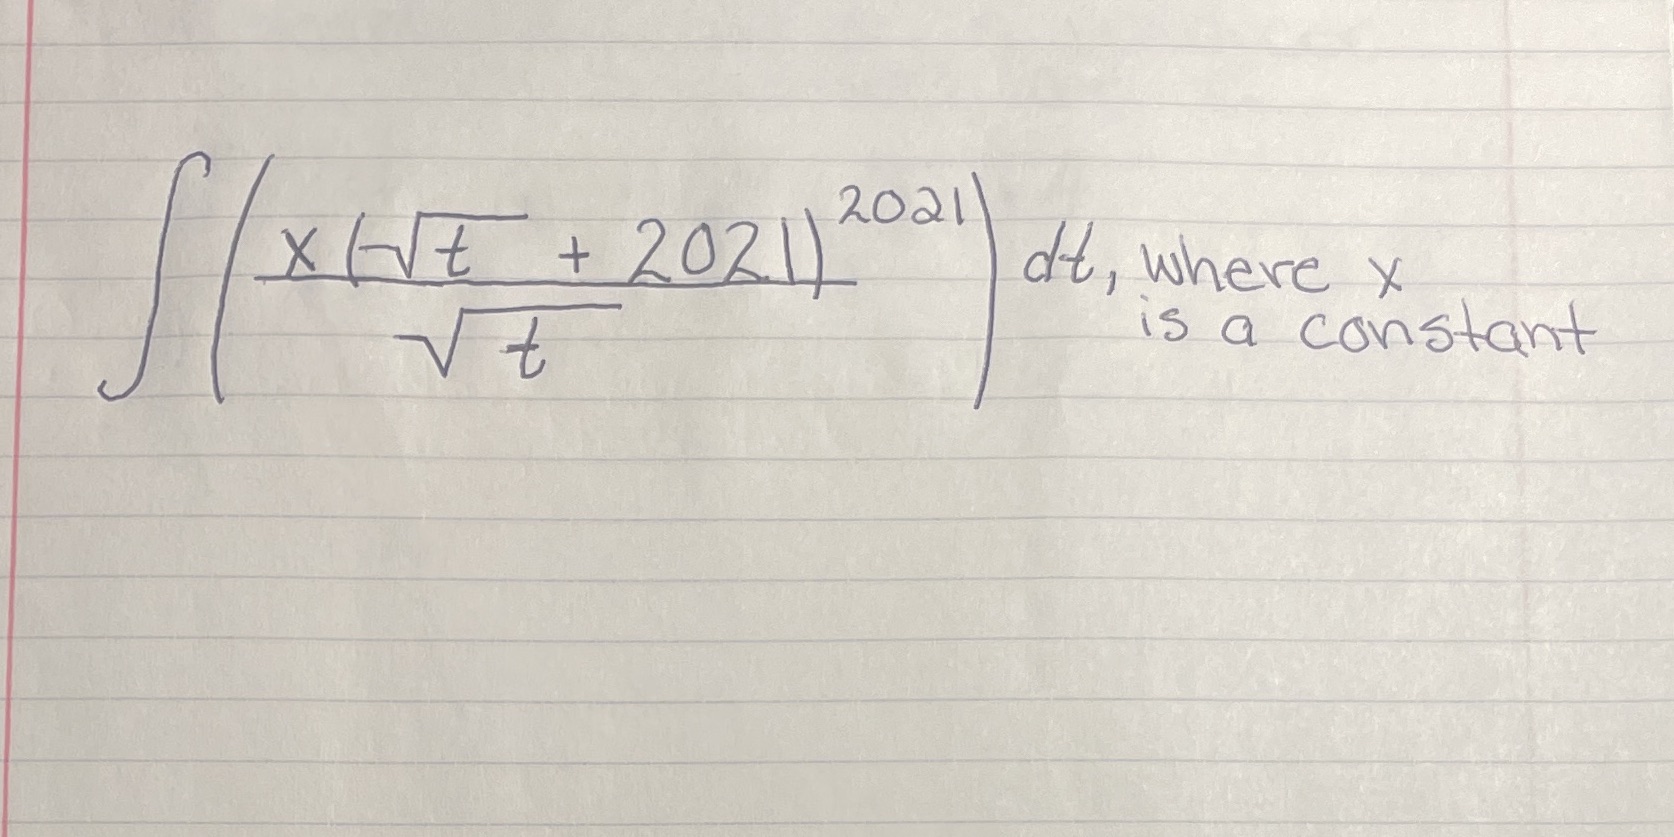 ∫ ( x(√t + 2021)^2021 / √t ) dt, where x
is a constant